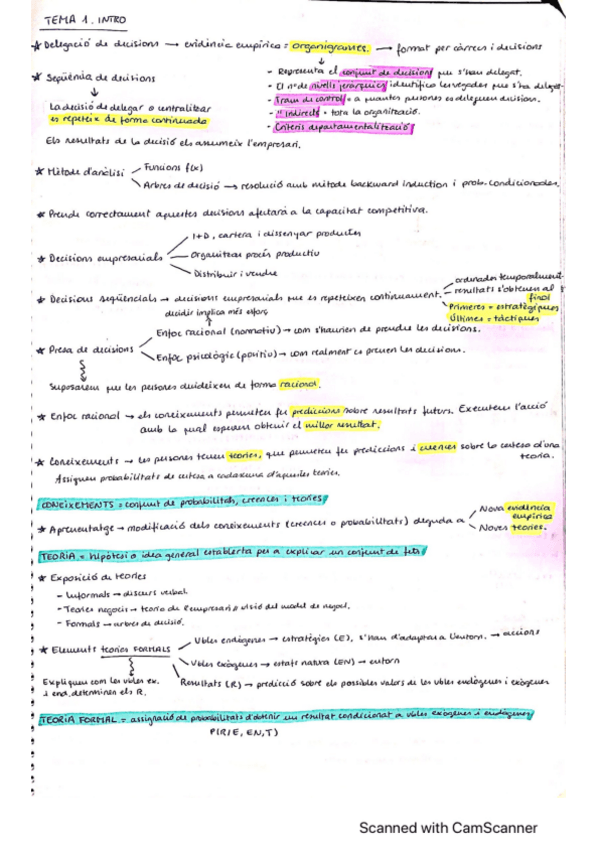 TEMA 1. INTRO
★ Delegació de decisions → evidència empírica = organigrames. → format per càrrecs i decisions
- Representa el conjunt de decisions que s'han delegat.
- El nº de nivells jeràrquics identifica les vegades que s'ha delegat.
- Tram de control = a quantes persones es deleguen decisions.
- " indirecte = tota la organització.
- Criteris departamentalització
★ Seqüència de decisions
La decisió de delegar o centralitzar
es repeteix de forma continuada
Els resultats de la decisió els assumeix l'empresari.
★ Mètode d'anàlisi
Funcions f(x)
Arbres de decisió → resolució amb mètode backward induction i prob. condicionades.
★ Prendre correctament aquestes decisions afectarà a la capacitat competitiva.
★ Decisions empresarials
I+D, cartera i dissenyar productes
Organitzar procés productiu
Distribuir i vendre
★ Decisions seqüencials → decisions empresarials que es repeteixen continuament.
ordenades temporalment
resultats s'obtenen al final
Primeres = estratègiques
Últimes = tàctiques
decidir implica més esforç
★ Presa de decisions
Enfoc racional (normatiu) → com s'haurien de prendre les decisions.
Enfoc psicològic (positiu) → com realment es prenen les decisions.
Suposarem que les persones decideixen de forma racional.
★ Enfoc racional → els coneixements permeten fer prediccions sobre resultats futurs. Executem l'acció
amb la qual esperem obtenir el millor resultat.
★ Coneixements → les persones tenen teories, que permeten fer prediccions i creences sobre la certesa d'una
teoria.
Assignen probabilitats de certesa a cadascuna d'aquestes teories.
CONEIXEMENTS = conjunt de probabilitats, creences i teories
★ Aprenentatge → modificació dels coneixements (creences o probabilitats) deguda a
Nova evidència
empírica
Noves teories.
TEORIA = hipòtesi o idea general establerta per a explicar un conjunt de fets
★ Exposició de teories
- Informals → discurs verbal.
- Teories negocis → teoria de l'empresari o visió del model de negoci.
- Formals → arbres de decisió.
★ Elements teories FORMALS
Vbles endògenes → estratègies (E), s'han d'adaptar a l'entorn. → accions
Vbles exògenes → estats natura (EN) → entorn
Resultats (R) → predicció sobre els possibles valors de les vbles endògenes i exògenes
Expliquen com les vbles ex.
i end. determinen els R.
TEORIA FORMAL = assignació de probabilitats d'obtenir un resultat condicionat a vbles exògenes i endògenes
P(R/E, EN, T)
Scanned with CamScanner